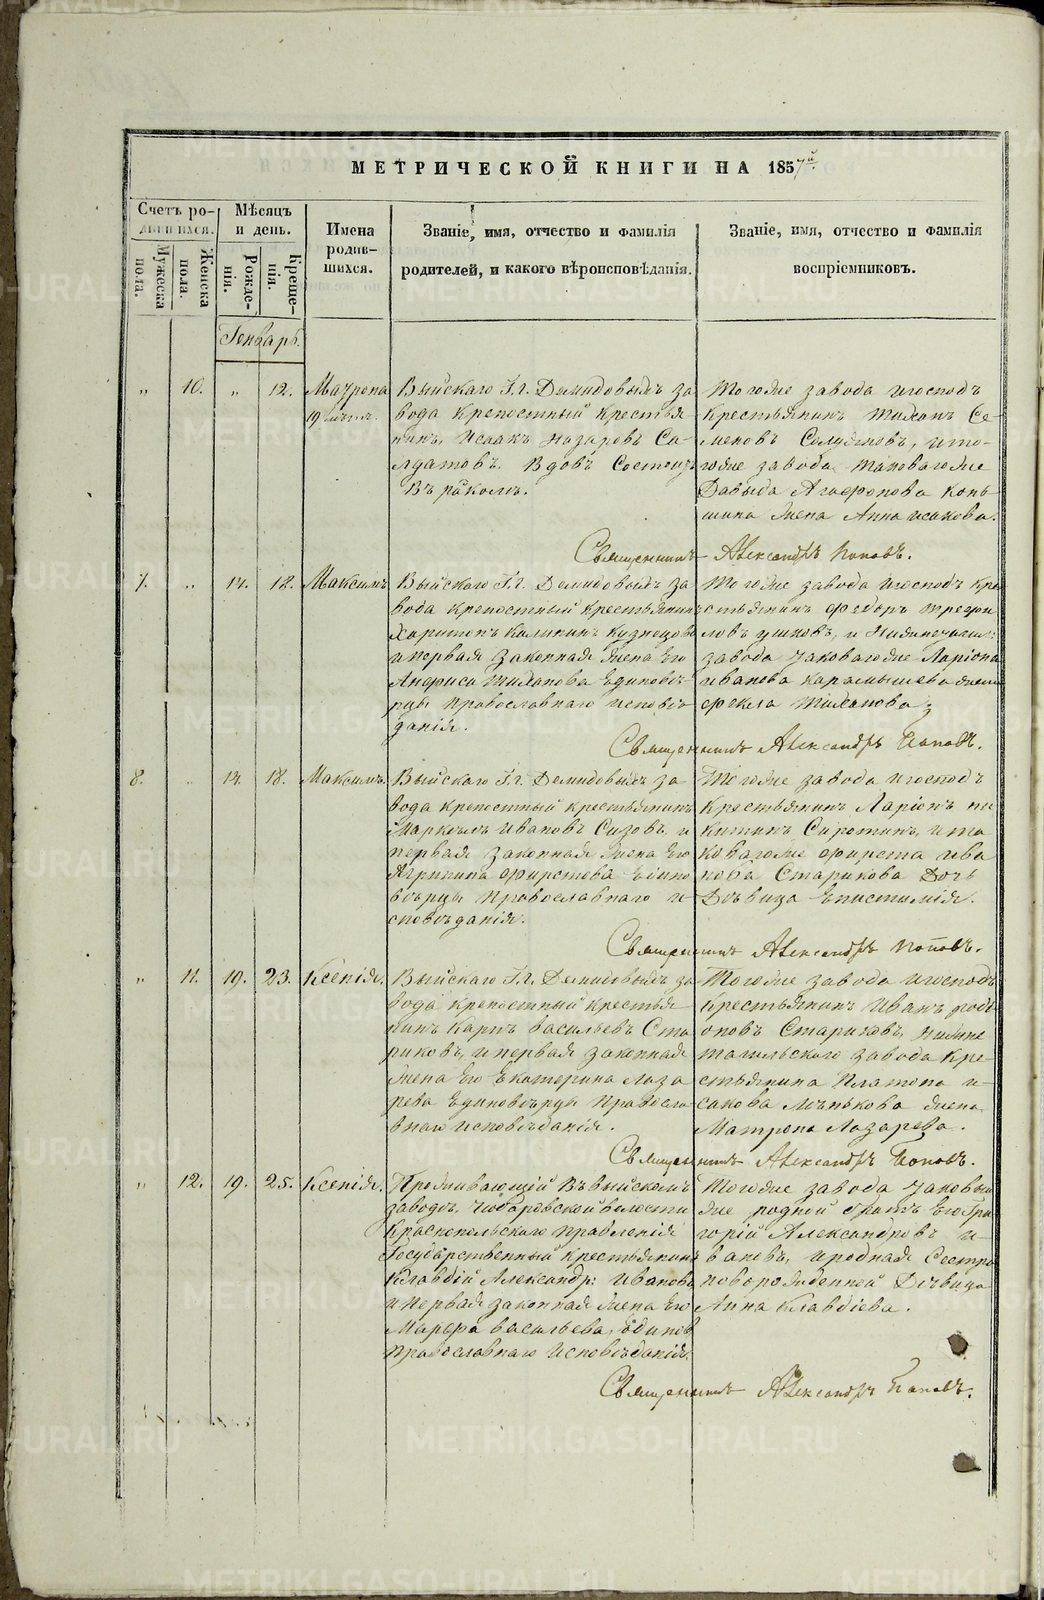 МЕТРИЧЕСКОЙ КНИГИ НА 1857й.
Счетъ ро-
дившихся.
Мужеска пола.
Женска пола.
Мѣсяцъ
и день.
Рожде-
нія.
Креще-
нія.
Имена
родив-
шихся.
Званіе, имя, отчество и фамилія
родителей, и какого вѣроисповѣданія.
Званіе, имя, отчество и фамилія
воспріемниковъ.
Генварь.
" 10. " 12.
Выйскаго Гг. Демидовыхъ за
вода крепостный крестья
нинъ, Исаакъ Назаровъ Со-
лдатовъ. Вдовъ Состоитъ
Въ
Тогоже завода игосподъ
Крестьянинъ Тиханъ Се-
меновъ итого-
гоже завода таковагоже
Давыда Агафонова Конь
шина жена Анна исакова.
Священникъ Александръ Поповъ.
7. " 14. 18. Максимъ
Выйскаго Гг. Демидовыхъ за
вода крепостный крестьянинъ
Харитонъ Калининъ Кузнецовъ
и первая законная жена Его
Анфиса Тиханова Единовѣ
рцы православнаго исповѣ
данія.
Тогоже завода игосподъ кре
стьянинъ Федоръ Трефи
ловъ ушковъ, и Нижнетагил:
завода таковагоже Ларіона
иванова карамышева жена
фекла Тиханова.
Священникъ Александръ Поповъ.
8. " 14. 18. Максимъ.
Выйскаго Гг. Демидовыхъ за-
вода крепостный крестьянинъ
Маркелъ Ивановъ Сизовъ, и
первая законная жена Его
Агрипина Фирстова Едино
вѣрцы православнаго и-
сповѣданія.
Тогоже завода игосподъ
Крестьянинъ Ларіонъ ни
китинъ Сиротинъ, и та
ковагоже фирста ива
нова Старикова Дочь
Дѣвица Епистимія.
Священникъ Александръ Поповъ.
" 11. 19. 23. Ксенія.
Выйскаго Гг. Демидовыхъ за
вода крепостный крестья
нинъ Карпъ васильевъ Ста
риковъ, и первая законная
жена Его Екатерина Лаза
рева Единовѣрцы Правосла
внаго исповѣданія.
Тогоже завода игосподъ
Крестьянинъ Иванъ роді
оновъ Стариковъ, нижне
тагильскаго завода Кре-
стьянина Платона и-
сакова жена
Матрона Лазарева.
Священникъ Александръ Поповъ.
" 12. 19. 25. Ксенія.
Проживающій Въ выйскомъ
заводѣ, волости
Краснопольскаго правленія
Государственный крестьянинъ
Клавдій Александр: Ивановъ
и первая законная жена Его
Марфа васильева, единов
православнаго Исповѣданія.
Тогоже завода таковый
же родной братъ Его Гри
горій Александровъ и-
вановъ, и родная Сестра
новорожденной Дѣвица
Анна Клавдіева.
Священникъ Александръ Поповъ.
METRIKI.GASO-URAL.RU